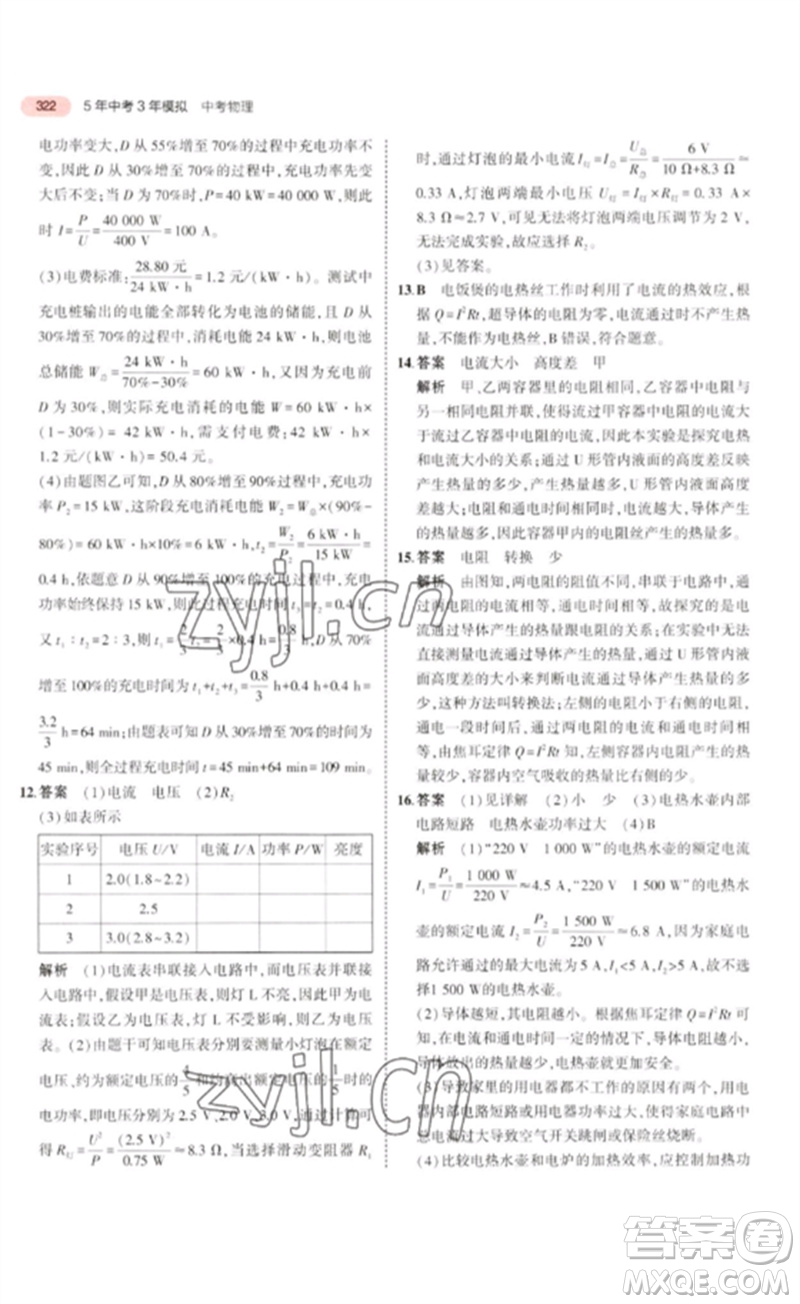 322 5年中考3年模拟 中考物理
电功率变大,D 从 55%增至 70%的过程中充电功率不
变,因此 D 从 30%增至 70%的过程中,充电功率先变
大后不变;当 D 为 70%时,P=40 kW=40 000 W,则此
时 I=P/U=40 000 W/400 V=100 A。
(3)电费标准:28.80 元/24 kW·h=1.2 元/(kW·h)。测试中
充电桩输出的电能全部转化为电池的储能,且 D 从
30%增至 70%的过程中,消耗电能 24 kW·h,则电池
总储能 W总=24 kW·h/70%-30%=60 kW·h,若从 D 为 30%增至
D 为 100%,则实际充电消耗的电能 W=60 kW·h×
(1-30%)=42 kW·h,需支付电费:42 kW·h×
1.2 元/(kW·h)=50.4 元。
(4)由题图乙可知,D 从 80%增至 90%的过程中充电
功率 P₂=15 kW,这阶段充电消耗电能 W₂=W总×(90%-
80%)=60 kW·h×10%=6 kW·h,t₂=W₂/P₂=6 kW·h/15 kW=
0.4 h,依题意 D 从 90%增至 100%的过程中,充电
功率始终保持 15 kW,则此过程充电时间 t₃=t₂=0.4 h,
又 t₁∶t₂=2∶3,则 t₁=2/3 t₂=2/3×0.4 h=0.8/3 h,D 从 70%
增至 100%的充电时间为 t₁+t₂+t₃=0.8/3 h+0.4 h+0.4 h=
3.2/3 h=64 min;由题表可知 D 从 30%增至 70%的时间为
45 min,则全过程充电时间=45 min+64 min=109 min。
12.答案 (1)电流 电压 (2)R₂
(3)如表所示
实验序号 电压 U/V 电流 I/A 功率 P/W 亮度
1 2.0(1.8~2.2)
2 2.5
3 3.0(2.8~3.2)
解析 (1)电流表串联接入电路中,而电压表并联接
入电路中,假设甲是电压表,则灯 L 不亮,因此甲为电
流表;假设乙为电流表,灯 L 不受影响,则乙为电压表。
(2)由题干可知电压表分别要测量小灯泡在额定
电压、约为额定电压 4/5 和约高出额定电压 1/5 时的
电功率,即电压分别为 2.5 V、2.0 V、3.0 V,通过计算可
得 R灯=U²/P=(2.5 V)²/0.75 W≈8.3 Ω,当选择滑动变阻器 R₁
时,通过灯泡的最小电流 I灯=I总=U总/R总=6 V/10 Ω+8.3 Ω≈
0.33 A,灯泡两端最小电压 U灯=I灯×R灯=0.33 A×
8.3 Ω≈2.7 V,可见无法将灯泡两端电压调节为 2 V,
无法完成实验,故应选择 R₂。
(3)见答案。
13.B 电饭煲的电热丝工作时利用了电流的热效应,根
据 Q=I²Rt,超导体的电阻为零,电流通过时不产生热
量,不能作为电热丝,B 错误,符合题意。
14.答案 电流大小 高度差 甲
解析 甲、乙两容器的电阻相同,乙容器中电阻与
另一相同电阻并联,使得流过甲容器中电阻的电流大
于流过乙容器中电阻的电流,因此本实验是探究电热
和电流大小的关系;通过 U 形管内液面的高度差反映
产生热量的多少,当电阻一定时,电流越大,导体产生的
热量越多,因此容器甲内的电阻丝产生的热量多。
15.答案 电阻 转换 少
解析 由图知,两电阻的阻值不同,串联于电路中,
通过电阻的电流相等,通电时间相等,故探究的是电
流通过导体产生的热量跟电阻的关系;在实验中无法
直接测量电流通过导体产生的热量,通过 U 形管内液
面高度差的大小来判断电流通过导体产生热量的多
少,这种方法叫转换法;左侧的电阻小于右侧的电阻,
通电一段时间后,通过两电阻的电流和通电时间相
等,由焦耳定律 Q=I²Rt 知,左侧容器内电阻产生的热
量少,容器内空气吸收的热量比右侧的少。
16.答案 (1)见详解 (2)小 少 (3)电热水壶内部
电路短路 电热水壶功率过大 (4)B
解析 (1)“220 V 1 000 W”的电热水壶的额定电流
I₁=P₁/U=1 000 W/220 V≈4.5 A,“220 V 1 500 W”的电热水
壶的额定电流 I₂=P₂/U=1 500 W/220 V≈6.8 A,因为家庭电
路允许通过的最大电流为 5 A,I₁<5 A,I₂>5 A,故不选
择1 500 W的电热水壶。
(2)导体越短,其电阻越小。根据焦耳定律 Q=I²Rt 可
知,在电流和通电时间一定的情况下,导体电阻越小,
导体放出的热量越少,电水壶更加安全。
(3)导致家里的用电器都不工作的原因有两个,一个
是电路中出现短路,另一个是用电器总功率过大,使
总电流过大导致空气开关跳闸或保险丝烧断。
(4)比较电热水壶和电炉的加热效率,应控制加热功
zyjl.cn
zyjl.cn
答案圈
MXQE.COM